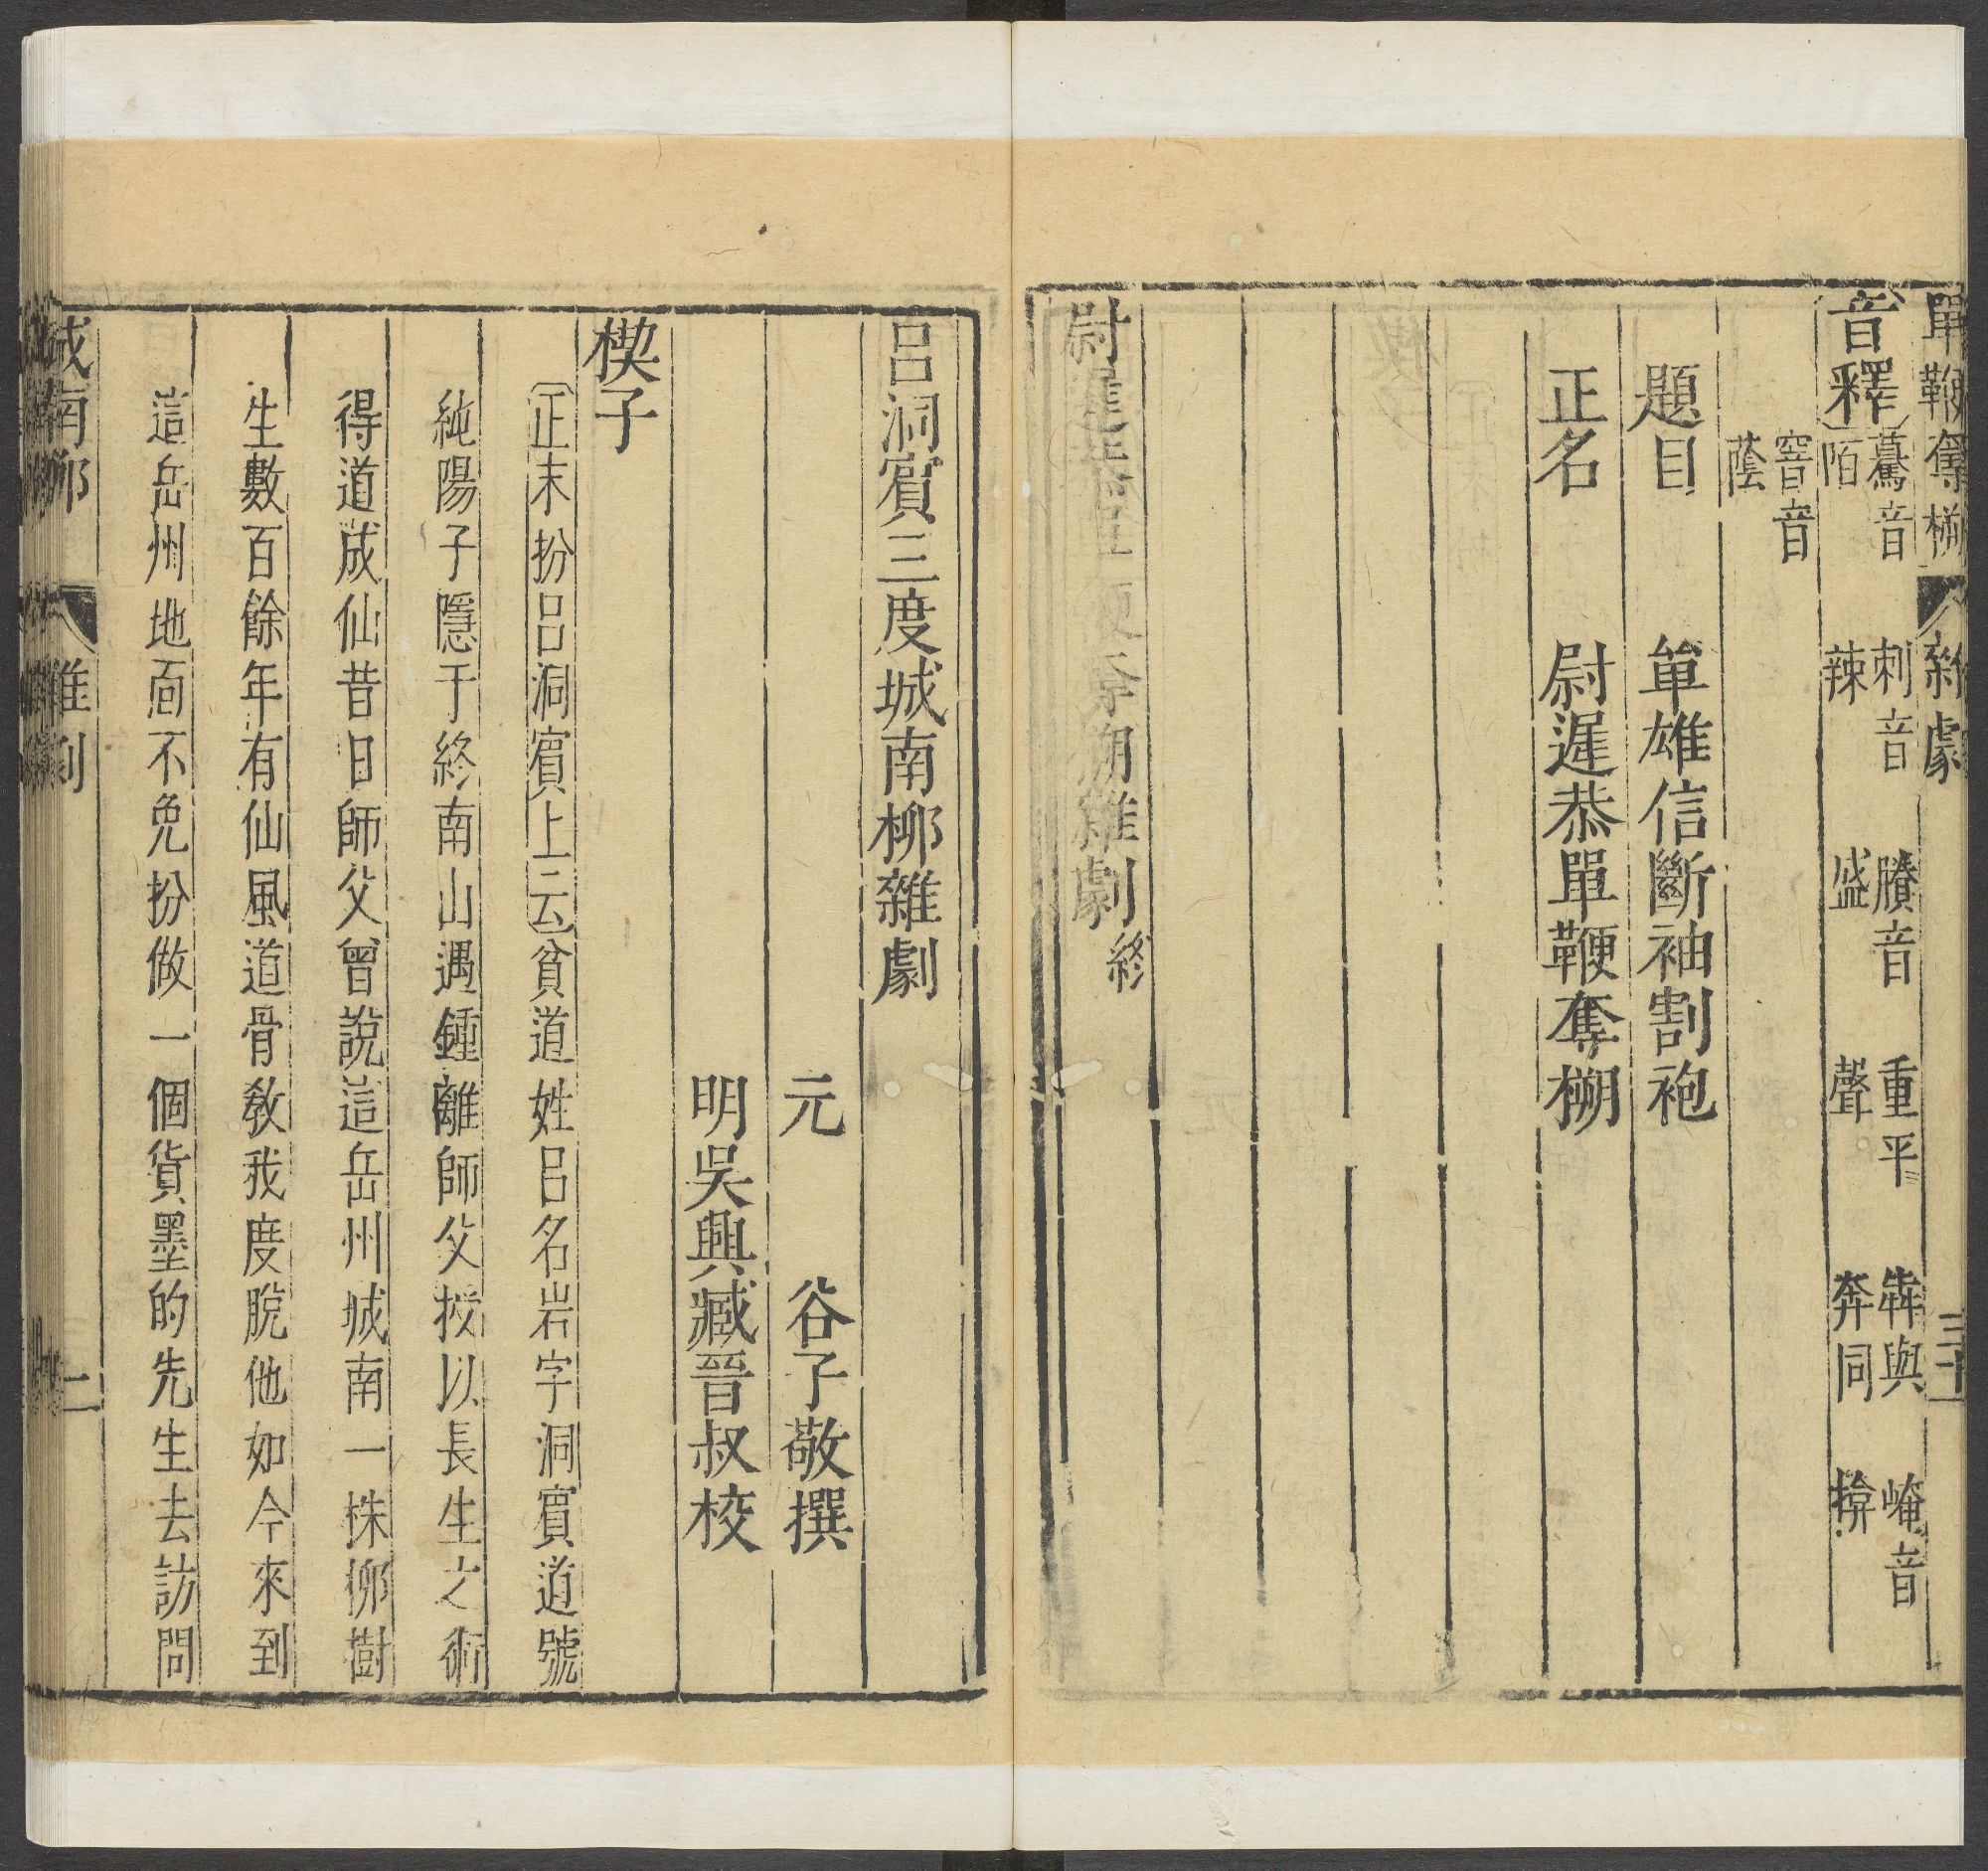 單鞭奪槊 雜劇 三十一
音釋 驀音陌 刺音辣 賸音盛 重平聲 犇與奔同 崦音揜
窨音蔭
題目 單雄信斷袖割袍
正名 尉遲恭單鞭奪槊
尉遲恭單鞭奪槊雜劇終
呂洞賔三度城南桺雜劇
元 谷子敬撰
明吳興臧晉叔校
楔子
〔正末扮呂洞賔上云〕貧道姓呂名岩字洞賔道號
純陽子隱于終南山遇鍾離師父授以長生之術
得道成仙昔日師父曾說這岳州城南一株桺樹
生數百餘年有仙風道骨敎我度脫他如今來到
這岳州地面不免扮做一個貨墨的先生去訪問
城南桺 雜劇 一